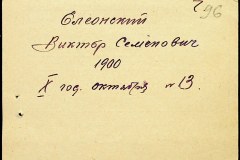 96
Елеонский
Виктор Семенович
1900
X год. октября № 13.